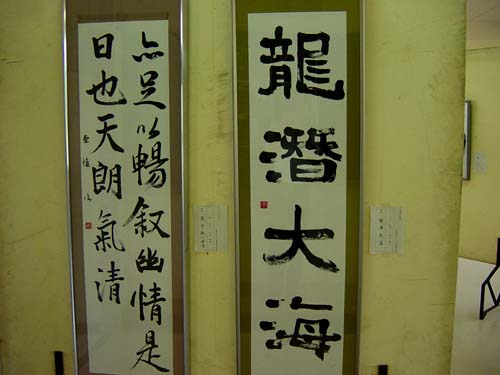 龍潛大海
亦足以暢叙幽情是
日也天朗氣清